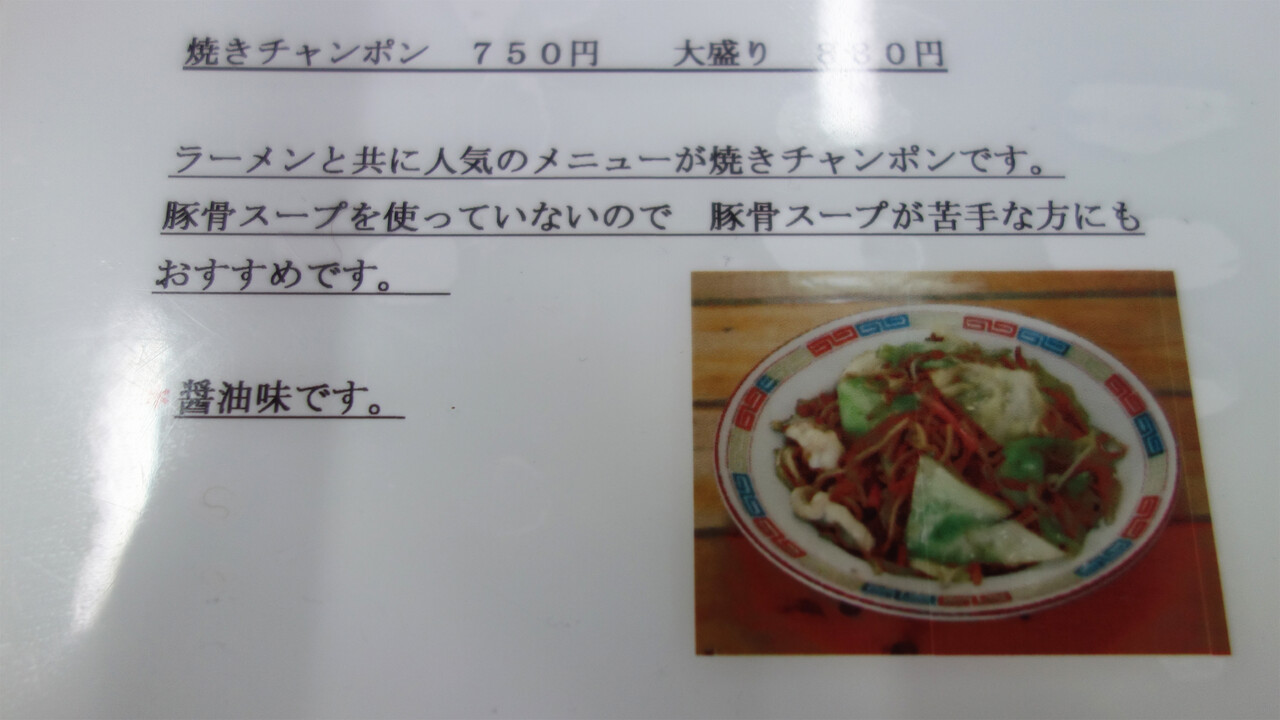 焼きチャンポン　７５０円　　大盛り　８８０円
ラーメンと共に人気のメニューが焼きチャンポンです。
豚骨スープを使っていないので　豚骨スープが苦手な方にも
おすすめです。
醤油味です。